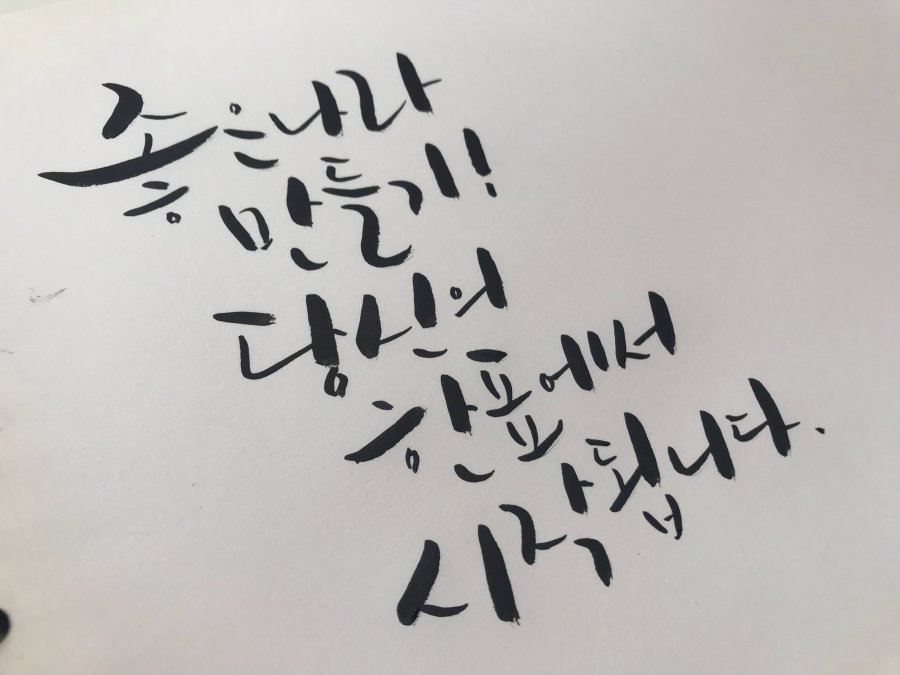 좋은나라
만들기!
당신의
한표에서
시작됩니다.